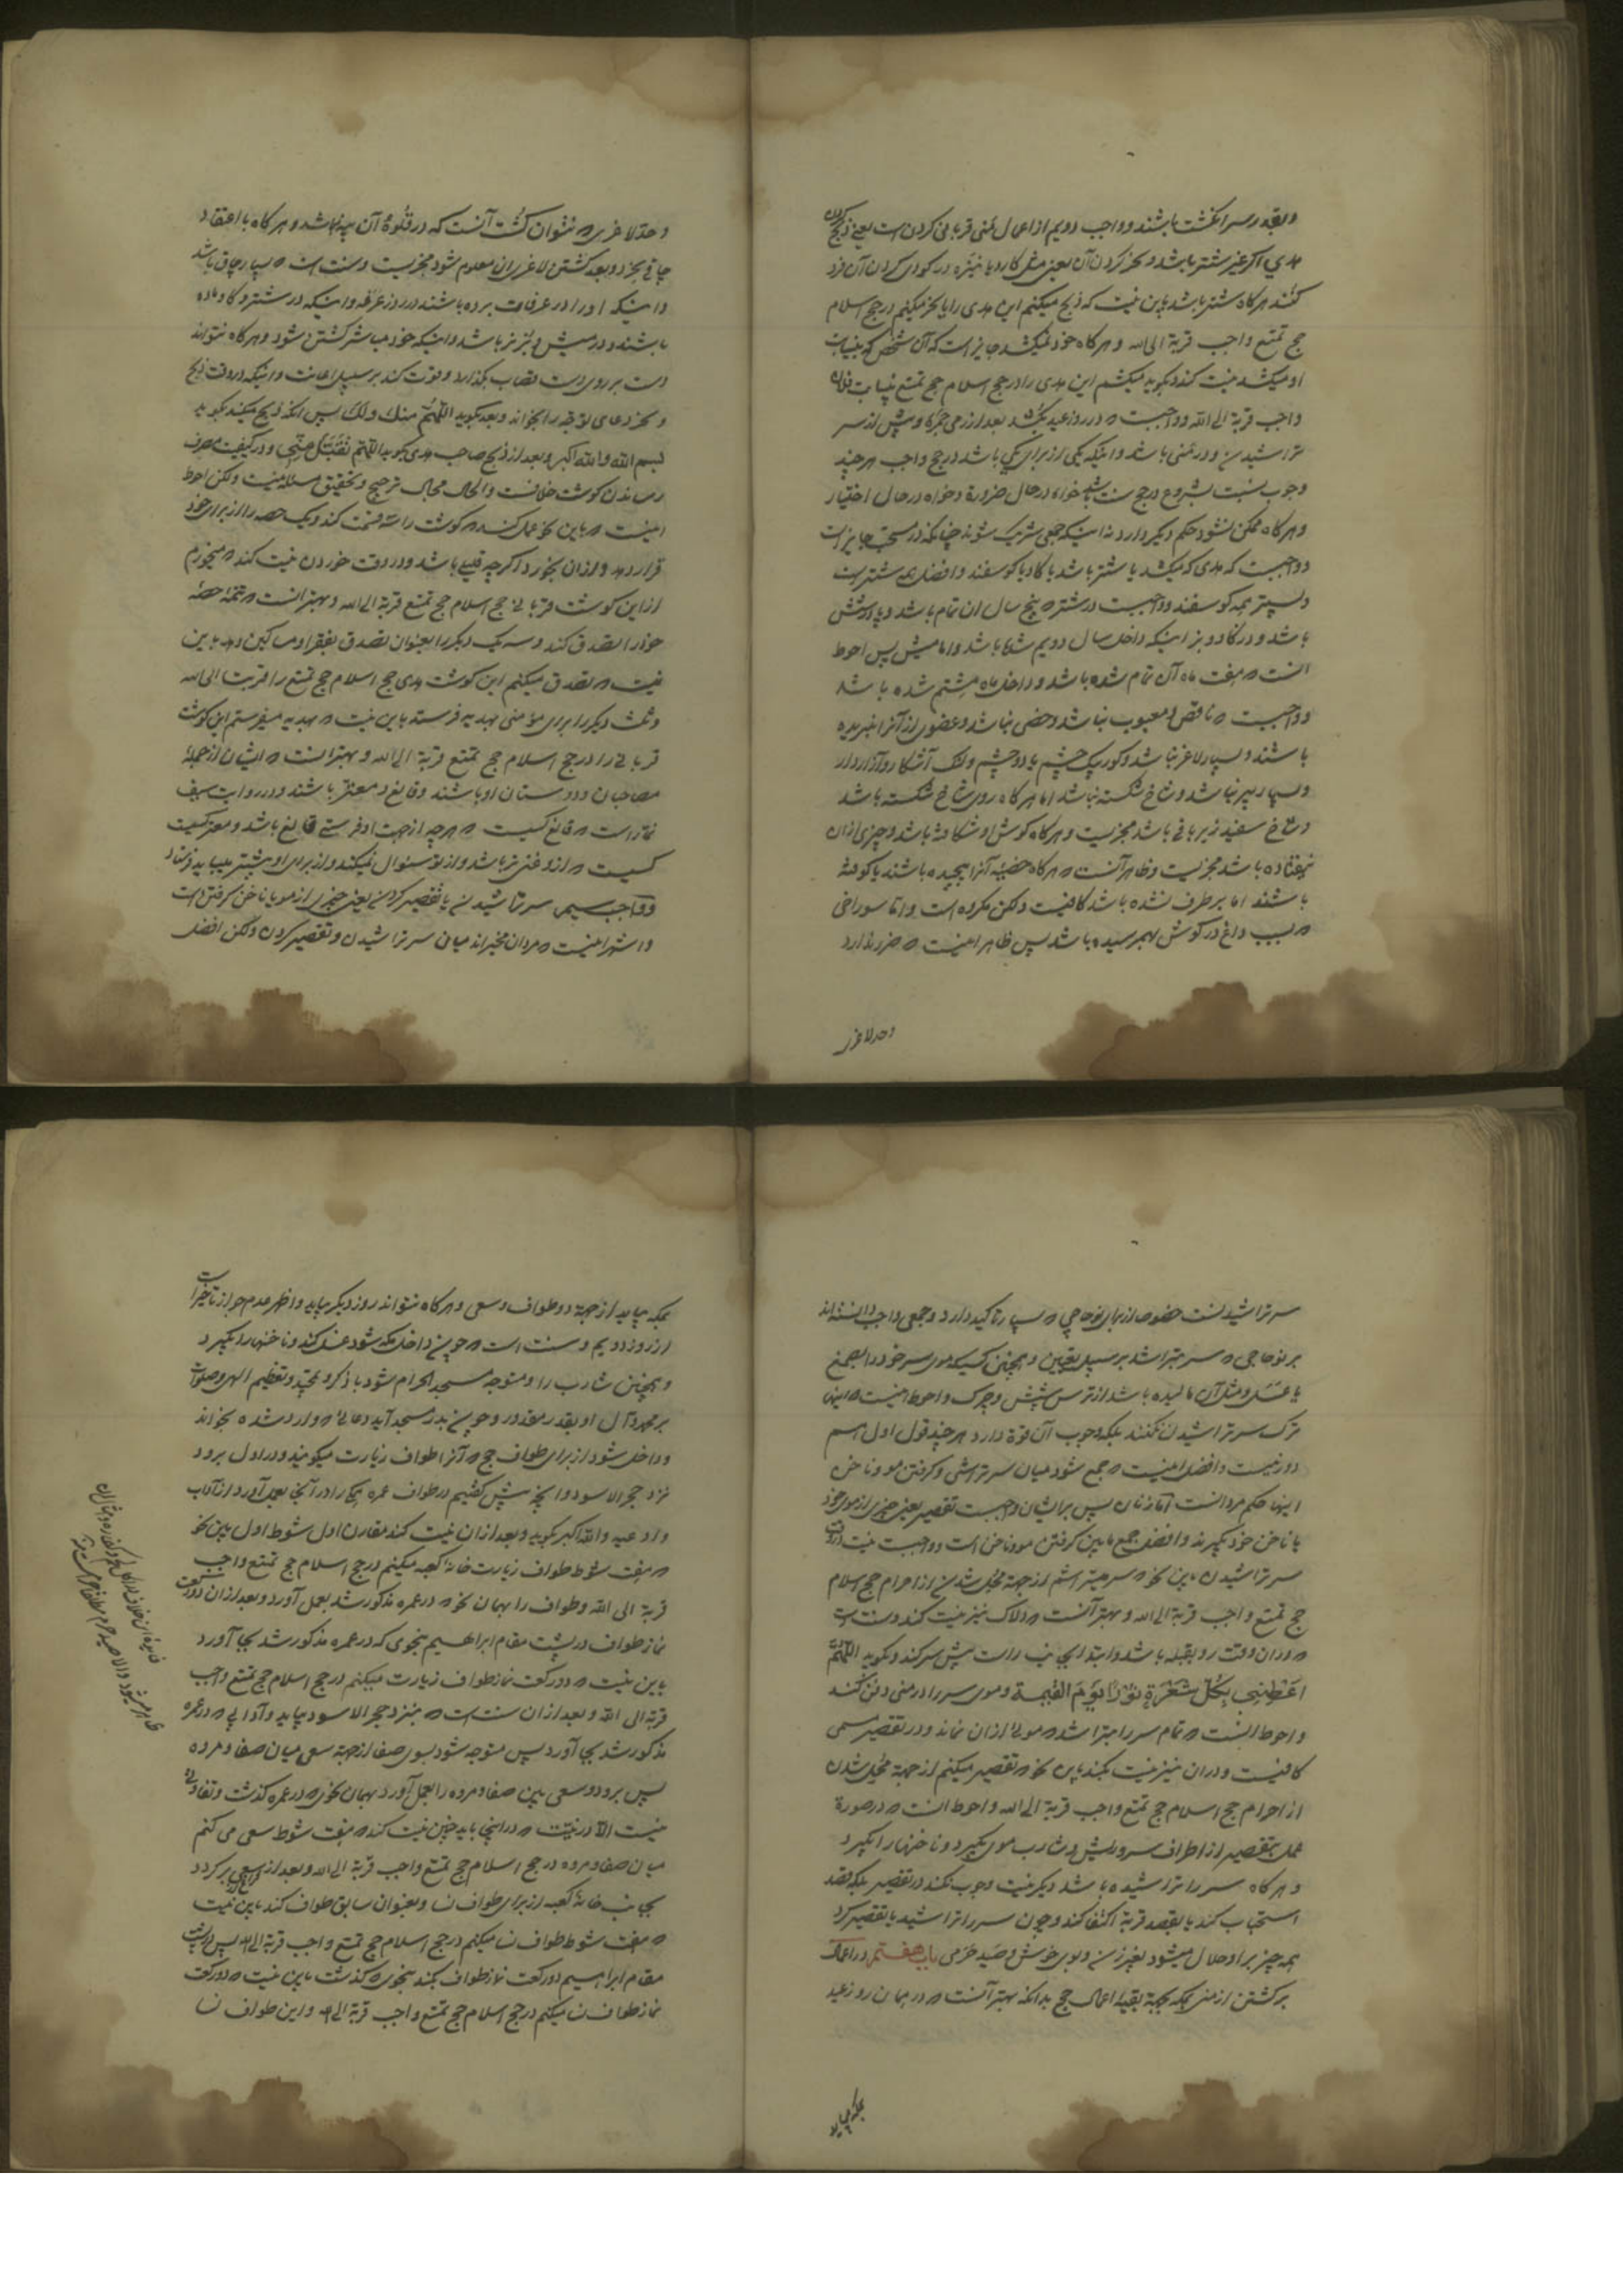 وبقدر سر انگشت باشند و واجب دویم از اعمال منی قربانی کردن است یعنی ذبح کردن
هدی اگر غیر شتر باشد و نحر کردن آن یعنی مثل کارد یا نیزه در گودی گردن آن فرو
کنند هرگاه شتر باشد باین نیت که ذبح میکنم این هدی را یا نحر میکنم در حج اسلام
حج تمتع واجب قربة الی الله و هرگاه خود نمیکشد جایز است که آن شخص که بنیابت
او میکشد نیت کند و بگوید میکشم این هدی را در حج اسلام حج تمتع بنیابت فلان
واجب قربة الی الله و واجبست که در روز عید بکشد بعد از رمی جمره و پیش از سر
تراشیدن و در منی باشد و اینکه یکی از برای یکی باشد در حج واجب هرچند
وجوب بسبب شروع در حج سنت باشد خواه در حال ضرورة و خواه در حال اختیار
و هرگاه ممکن نشود حکم دیگر دارد نه اینکه جمعی شریک شوند چنانکه در مستحب جایز است
و واجبست که هدی که میکشد یا شتر باشد یا گاو یا گوسفند و افضل همه شتر است
و پستر همه گوسفند و واجبست در شتر که پنج سال آن تمام باشد و پا در شش
باشد و در گاو و بز اینکه داخل سال دویم شده باشد و اما میش پس احوط
آنست که هفت ماه آن تمام شده باشد و داخل ماه هشتم شده باشد
و واجبست که ناقص و معیوب نباشد و خصی نباشد و عضوی از آنرا نبریده
باشند و بسیار لاغر نباشد و کور یک چشم یا دو چشم و لنگ آشکار و آزاردار
و بسیار پیر نباشد و شاخ شکسته نباشد اما هرگاه روی شاخ شکسته باشد
و شاخ سفید زیر باقی باشد مجزیست و هرگاه گوش او شکافته باشد و چیزی از آن
نیفتاده باشد مجزیست و ظاهر آنست که هرگاه خصیه آنرا پیچیده باشند یا کوفته
باشند اما برطرف نشده باشد کافیست و لکن مکروه است و اما سوراخی
که بسبب داغ در گوش بهم رسیده باشد پس ظاهر اینست که ضرر ندارد
و حد لاغری
و حد لاغری که نتوان کشت آنست که در قلوهٔ آن پیه نباشد و هرگاه باعتقاد
چاقی بخرد و بعد کشتن لاغری آن معلوم شود مجزیست و سنت است که بسیار چاق باشد
و اینکه او را در عرفات برده باشند در روز عرفه و اینکه در شتر و گاو ماده
باشند و در میش و بز نر باشد و اینکه خود مباشر کشتن شود و هرگاه نتواند
دست بر روی دست قصاب بگذارد و قوت کند بر سبیل اعانت و اینکه در وقت ذبح
و نحر دعای توجه را بخواند و بعد بگوید اللهم منک ولک پس آنکه ذبح میکند بگوید
بسم الله والله اکبر و بعد از ذبح صاحب هدی بگوید اللهم تقبل منی و در کیفیت مصرف
رساندن گوشت خلافست و الحال مجال ترجیح و تحقیق مسئله نیست و لکن احوط
اینست که باین نحو عمل کند که گوشت را سه قسمت کند و یک حصه را از برای خود
قرار دهد و از آن بخورد اگرچه قلیلی باشد و در وقت خوردن نیت کند که میخورم
از این گوشت قربانی حج اسلام حج تمتع قربة الی الله و بهتر آنست که تتمهٔ حصهٔ
خود را تصدق کند و سه یک دیگر را بعنوان تصدق بفقرا و مساکین دهد باین
نیت که تصدق میکنم این گوشت هدی حج اسلام حج تمتع را قربت الی الله
و ثلث دیگر را برای مؤمنی بهدیه فرستد باین نیت که بهدیه میفرستم این گوشت
قربانی را در حج اسلام حج تمتع قربة الی الله و بهتر آنست که ایشان از جملهٔ
مصاحبان و دوستان او باشند و قانع و معتر باشند و در روایت سیف
تمار است که قانع کسیست که هرچه از جهت او فرستی قانع باشد و معتر کسیست
کسیست که از او غنی تر باشد و از تو سئوال نمیکند و از برای او بیشتر
و واجب سیم سر تراشیدن یا تقصیر کردن یعنی چیزی از مو یا ناخن گرفتن است
و اشهر اینست که مردان مخیراند میان سر تراشیدن و تقصیر کردن و لکن افضل
سر تراشیدنست خصوصا از برای نو حاجی که بسیار تاکید دارد و جمعی واجب دانسته‌اند
بر نو حاجی که سر بتراشد بر سبیل تعیین و همچنین کسیکه موی سر خود را بصمغ
یا عسل و مثل آن مالیده باشد از ترس شپش و چرک و احوط اینست که اینها
ترک سر تراشیدن نکنند بلکه وجوب آن قوة دارد هرچند قول اول هم
دور نیست و افضل اینست که جمع شود میان سر تراشی و گرفتن مو و ناخن
اینها حکم مردانست اما زنان پس بر ایشان واجبست تقصیر یعنی چیزی از موی خود
یا ناخن خود بگیرند و افضل جمع مابین گرفتن مو و ناخن است و واجبست نیت در وقت
سر تراشیدن باین نحو که سر میتراشم از جهة محل شدن از احرام حج اسلام
حج تمتع واجب قربة الی الله و بهتر آنست که دلاک نیز نیت کند و سنت است
که در آن وقت رو بقبله باشد و ابتدا بجانب راست پیش سر کند و بگوید اللهم
اعطنی بکل شعرة نورا یوم القیمة و موی سر را در منی دفن کند
و احوط اینست که تمام سر را بتراشد که موئی از آن نماند و در تقصیر مسمی
کافیست و در آن نیز نیت بکند باین نحو که تقصیر میکنم از جهة محل شدن
از احرام حج اسلام حج تمتع واجب قربة الی الله و احوط آنست که در صورة
عمل بتقصیر از اطراف سر و ریش و شارب موی بگیرد و ناخنها را بگیرد
و هرگاه سر را تراشیده باشد دیگر نیت وجوب نکند در تقصیر بلکه قصد
استحباب کند یا بقصد قربة اکتفا کند و چون سر را تراشید یا تقصیر کرد
همه چیز بر او حلال میشود بغیر زن و بوی خوش و صید حرمی باب هفتم در اعمال
برگشتن از منی بمکه بجهة بقیهٔ اعمال حج بدانکه بهتر آنست که در همان روز عید
بمکه بیاید
بمکه بیاید از جهة دو طواف و سعی و هرگاه نتواند روز دیگر بیاید و اظهر عدم جواز تاخیر است
از روز دویم و سنت است که چون داخل مکه شود غسل کند و ناخنها را بگیرد
و همچنین شارب را و متوجه مسجد الحرام شود با ذکر و تمجید و تعظیم الهی و صلوات
بر محمد و آل او بقدر مقدور و چون بدر مسجد آید دعائی که وارد شده بخواند
و داخل شود از برای طواف حج که آنرا طواف زیارت میگویند و در اول برود
نزد حجر الاسود و آنچه پیش گفتیم در طواف عمره همگی را در آنجا بعمل آورد از آداب
و ادعیه و الله اکبر بگوید و بعد از آن نیت کند مقارن اول شوط اول باین نحو
که هفت شوط طواف زیارت خانهٔ کعبه میکنم در حج اسلام حج تمتع واجب
قربة الی الله و طواف را بهمان نحو که در عمره مذکور شد بعمل آورد و بعد از آن دو رکعت
نماز طواف در پشت مقام ابراهیم بنحوی که در عمره مذکور شد بجا آورد
باین نیت که دو رکعت نماز طواف زیارت میکنم در حج اسلام حج تمتع واجب
قربة الی الله و بعد از آن سنت است که بنزد حجر الاسود بیاید و آدابی که در عمره
مذکور شد بجا آورد پس متوجه شود بسوی صفا از جهة سعی میان صفا و مروه
پس برود و سعی بین صفا و مروه را بعمل آورد بهمان نحوی که در عمره گذشت و تفاوتی
نیست الا در نیت که در اینجا باید چنین نیت کند که هفت شوط سعی می کنم
میان صفا و مروه در حج اسلام حج تمتع واجب قربة الی الله و بعد از سعی برگردد
بجانب خانهٔ کعبه از برای طواف نسا و بعنوان سابق طواف کند باین نیت
که هفت شوط طواف نسا میکنم در حج اسلام حج تمتع واجب قربة الی الله پس در پشت
مقام ابراهیم دو رکعت نماز طواف بکند بنحوی که گذشت باین نیت که دو رکعت
نماز طواف نسا میکنم در حج اسلام حج تمتع واجب قربة الی الله و این طواف نسا